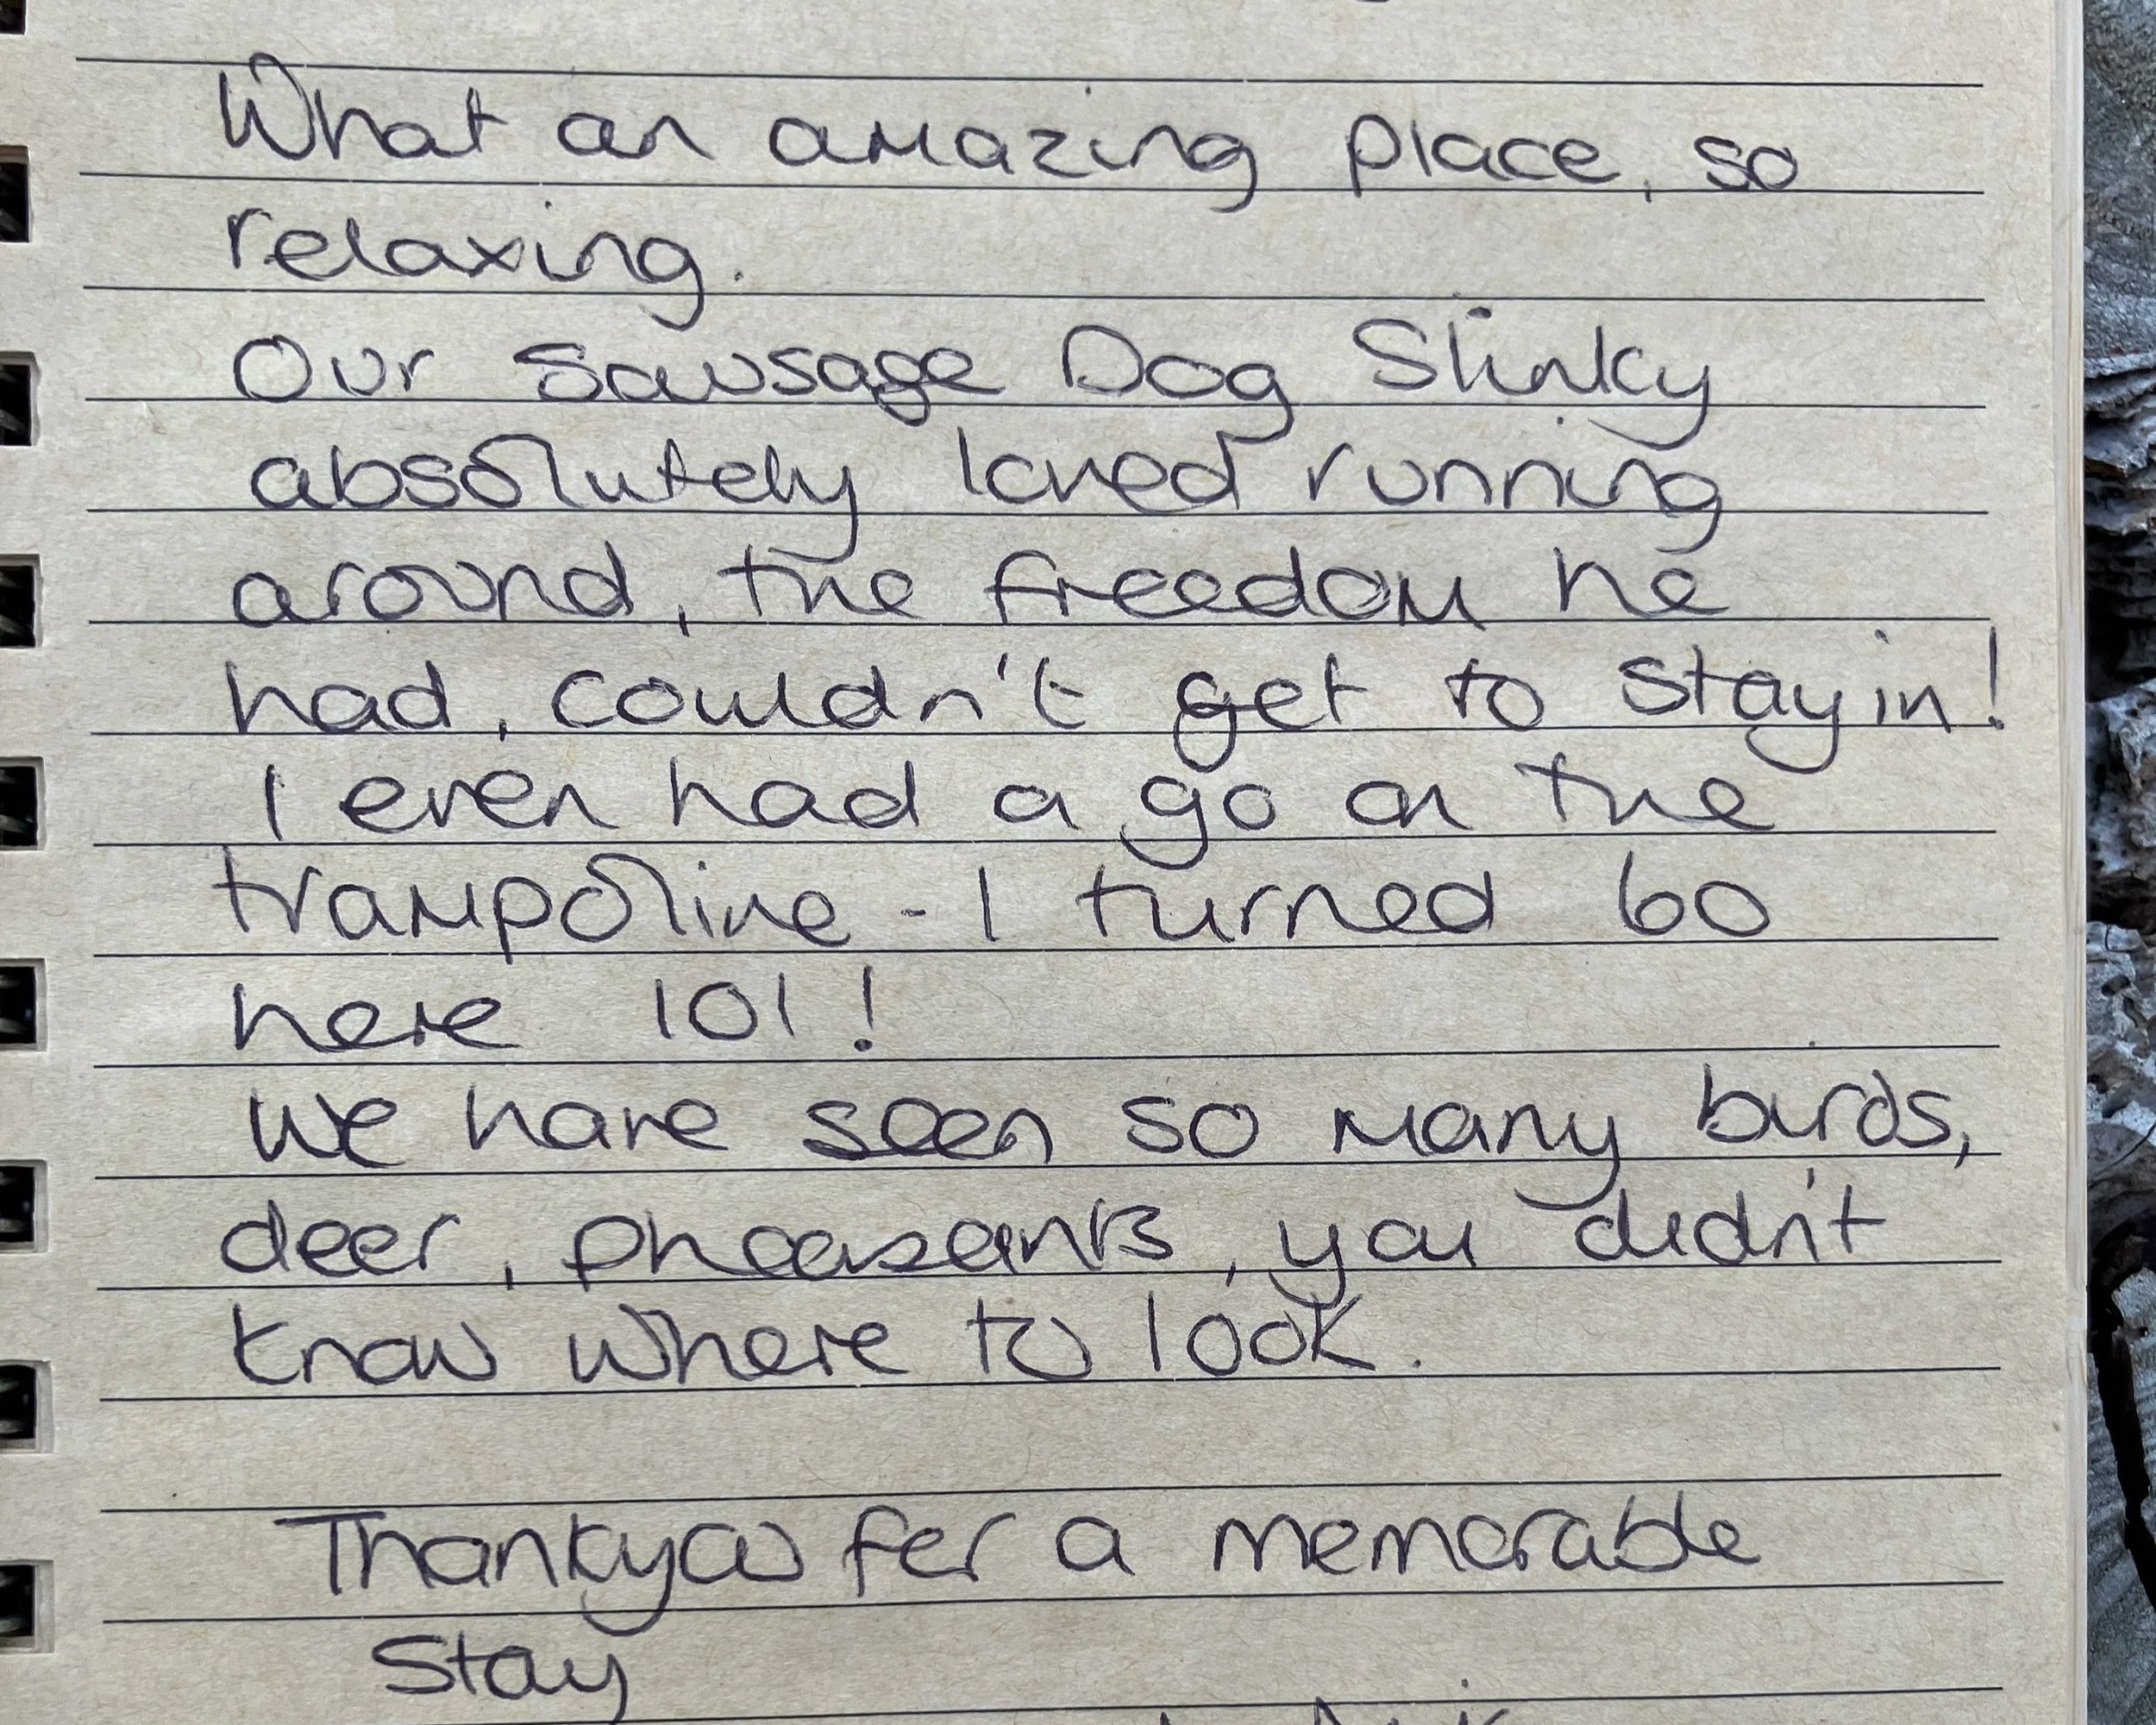 What an amazing place, so
relaxing.
Our Sausage Dog Slinky
absolutely loved running
around, the freedom he
had, couldn't get to stay in!
I even had a go on the
trampoline - I turned 60
here lol!
We have seen so many birds,
deer, pheasants, you didn't
know where to look.
Thankyou for a memorable
Stay